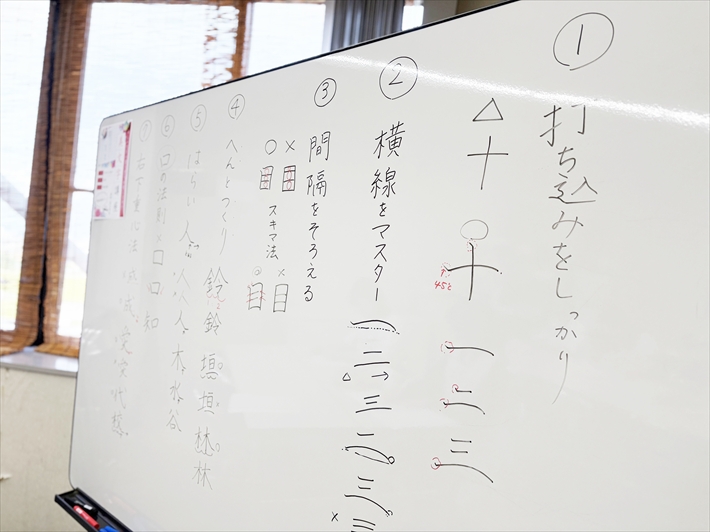 ① 打ち込みをしっかり
△ 十 ○ 十 一 二 三
45と
② 横線をマスター
二 三
③ 間隔をそろえる
× ○ スキマ法 × ○
④ へんとつくり 鈴 鈴 垣 垣 林 林
⑤ はらい 人 人 人 木 水 谷
⑥ 口の法則 × 口 口 知
⑦ 重心法